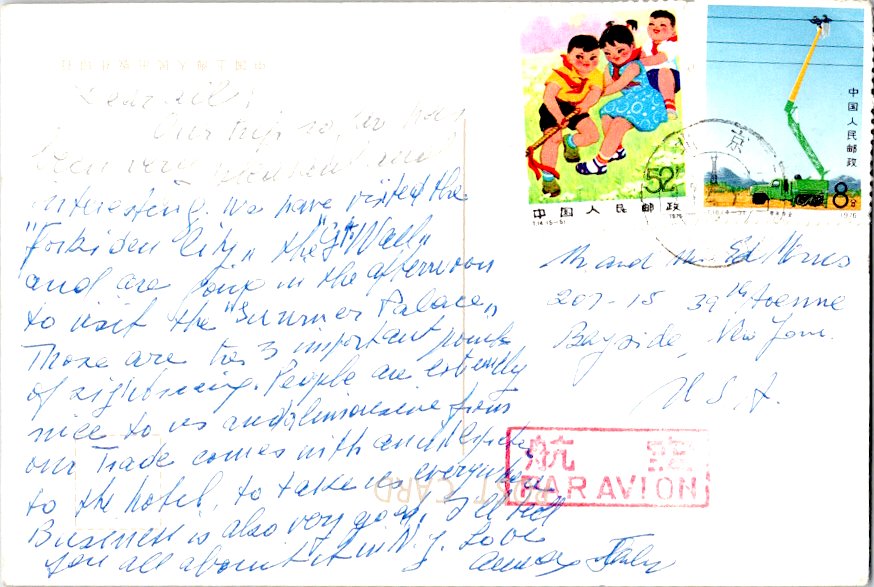 Our trip so far has
been very
interesting. We have visited the
"Forbiden City" the "Gt Wall"
and are going in the afternoon
to visit the "Summer Palace"
Those are the 3 important points
of sightseeing. People are extremely
nice to us and
our Trade comes with
to the hotel, to take us everywhere
Business is also very good, I will
you all about it in N.Y. Love
52
中国人民邮政
T.14.(5-5) 1976
中国人民邮政
8分
1976
京
Mr and Mrs Ed
207-15 39th Avenue
Bayside, New York.
U.S.A.
航空
PAR AVION
POST CARD